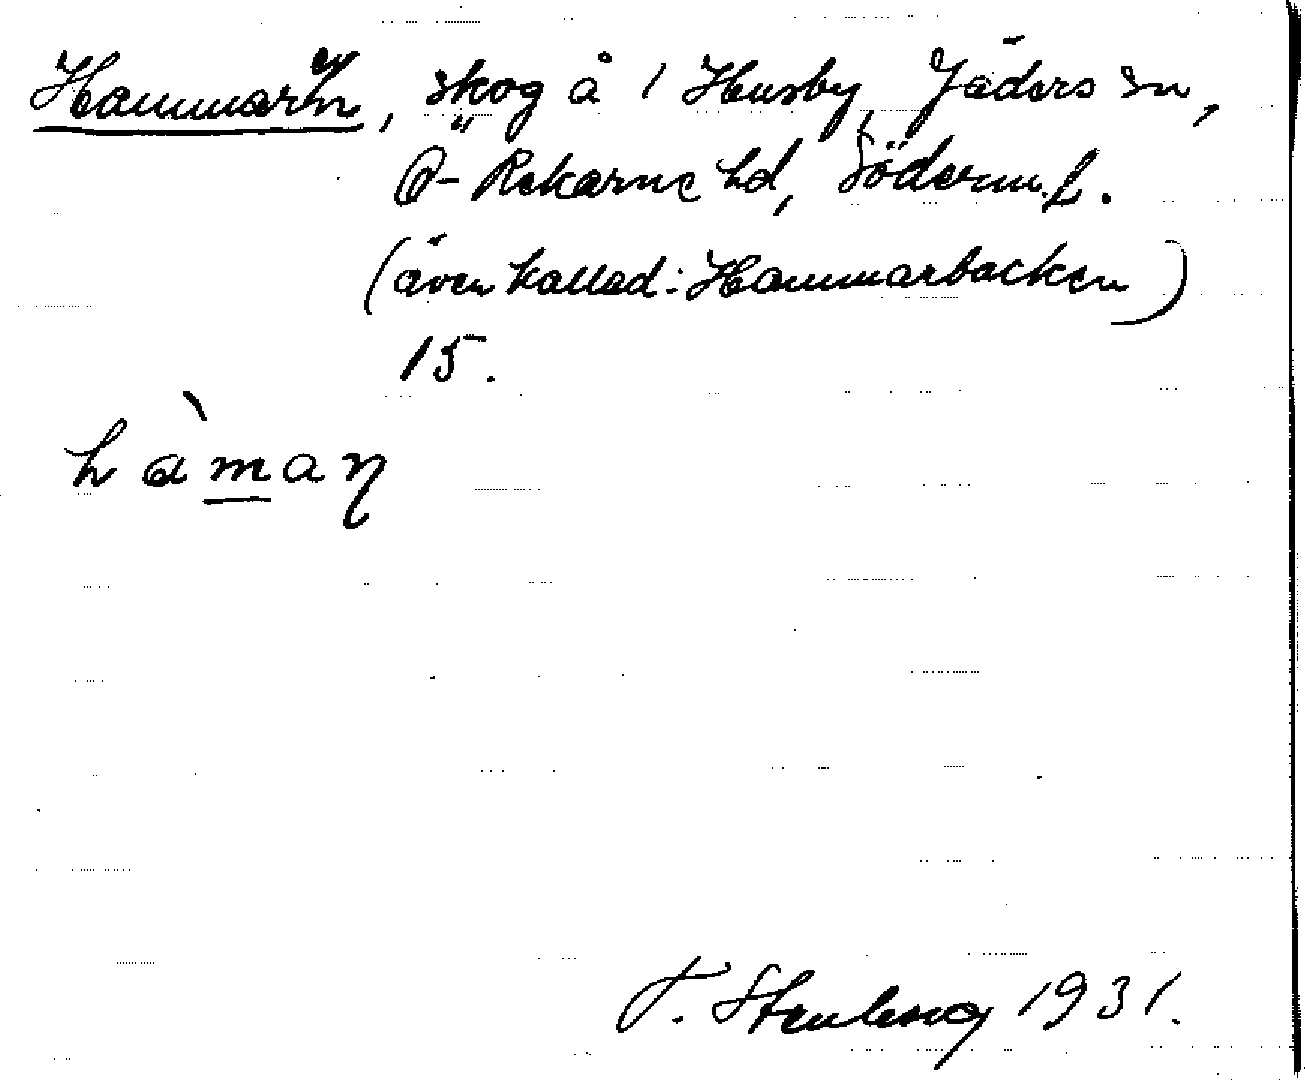 Hammarn, skog å 1 Husby, Jäders sn,
Ö-Rekarne hd, Söderm. l.
(även kallad: Hammarbacken)
15.
hàmaɳ
T. Stenberg 1931.